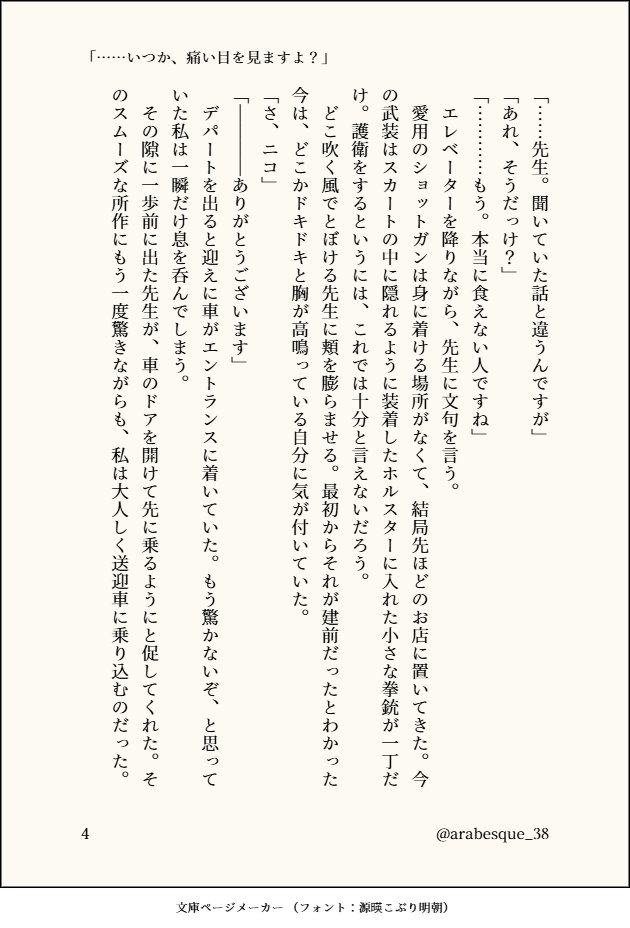 「……いつか、痛い目を見ますよ？」
「……先生。聞いていた話と違うんですが」
「あれ、そうだっけ？」
「…………もう。本当に食えない人ですね」
エレベーターを降りながら、先生に文句を言う。
愛用のショットガンは身に着ける場所がなくて、結局先ほどのお店に置いてきた。今
の武装はスカートの中に隠れるように装着したホルスターに入れた小さな拳銃が一丁だ
け。護衛をするというには、これでは十分と言えないだろう。
どこ吹く風でとぼける先生に頬を膨らませる。最初からそれが建前だったとわかった
今は、どこかドキドキと胸が高鳴っている自分に気が付いていた。
「さ、ニコ」
「――――ありがとうございます」
デパートを出ると迎えに車がエントランスに着いていた。もう驚かないぞ、と思って
いた私は一瞬だけ息を呑んでしまう。
その隙に一歩前に出た先生が、車のドアを開けて先に乗るようにと促してくれた。そ
のスムーズな所作にもう一度驚きながらも、私は大人しく送迎車に乗り込むのだった。
4
@arabesque_38
文庫ページメーカー （フォント：源暎こぶり明朝）